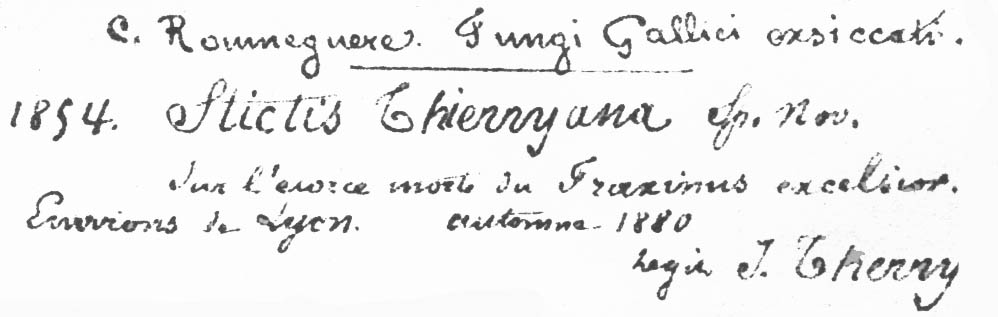 C. Roumeguere. Fungi Gallici exsiccati.
1854. Stictis Thierryana Sp. Nov.
Sur l'ecorce morte du Fraxinus excelsior.
Environs de Lyon. automne 1880
Legit J. Therry